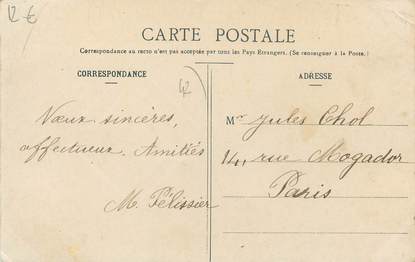 12 €
CARTE POSTALE
Correspondance au recto n'est pas acceptée par tous les Pays Etrangers. (Se renseigner à la Poste.)
CORRESPONDANCE
ADRESSE
Vœux sincères,
affectueux. Amitiés
M. Pélissier
Mr Jules Chol
14, rue Mogador
Paris